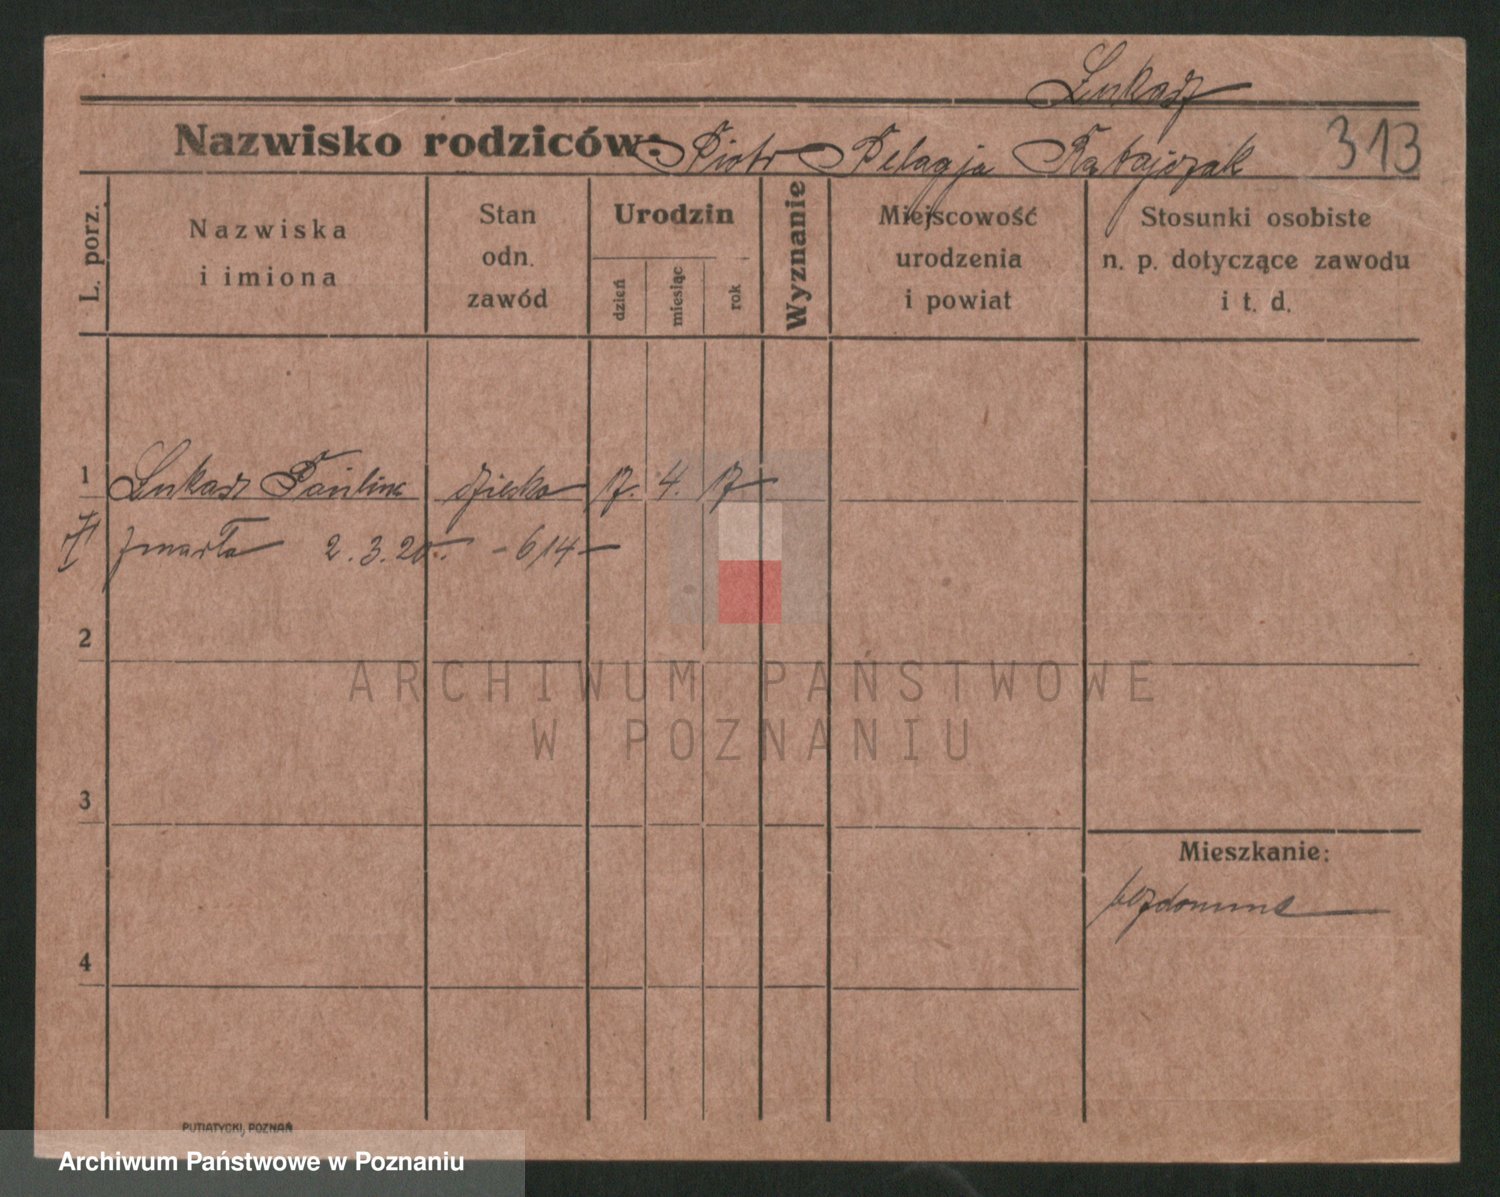 Łukasz
Nazwisko rodziców: Piotr Pelagja Ratajczak 313
L. porz.
Nazwiska i imiona
Stan odn. zawód
Urodzin
dzień
miesiąc
rok
Wyznanie
Miejscowość urodzenia i powiat
Stosunki osobiste n. p. dotyczące zawodu i t. d.
1 Łukasz Paulina dziecko 17. 4. 17
zmarła 2.3.20. - 614 -
2
ARCHIWUM PAŃSTWOWE
W POZNANIU
3
Mieszkanie:
bezdomne
4
PUTIATYCKI, POZNAŃ
Archiwum Państwowe w Poznaniu